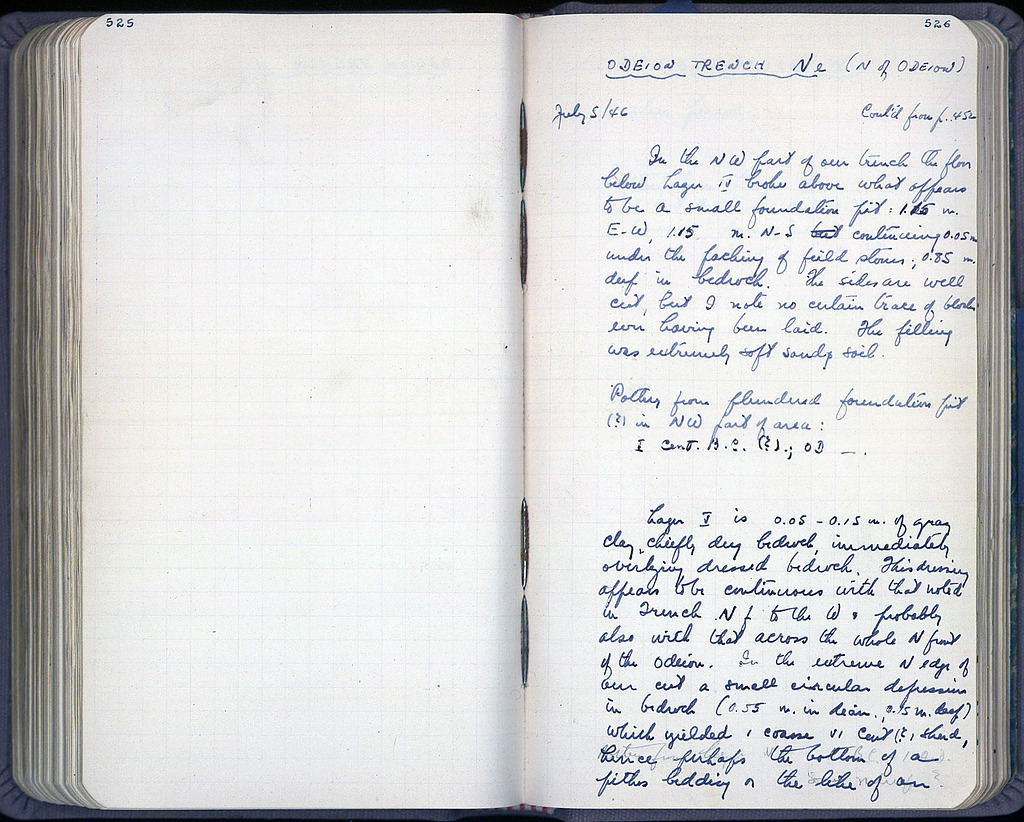 525
526
ODEION TRENCH Ne (N of ODEION)
July 5/46
Cont'd from p. 452
In the NW part of our trench the floor
below Layer IV broke above what appears
to be a small foundation pit: 1.15 m.
E-W, 1.15 m. N-S but continuing 0.05 m
under the packing of field stones; 0.85 m.
deep in bedrock. The sides are well
cut, but I note no certain trace of blocks
ever having been laid. The filling
was extremely soft sandy soil.
Pottery from plundered foundation pit
(?) in NW part of area:
I cent. B.C. (?).; OD —.
Layer V is 0.05 - 0.15 m. of gray
clay, chiefly dug bedrock, immediately
overlying dressed bedrock. This dressing
appears to be continuous with that noted
in Trench Nf to the W & probably
also with that across the whole N front
of the Odeion. In the extreme N edge of
our cut a small circular depression
in bedrock (0.55 m. in diam., 0.15 m. deep)
which yielded 1 coarse VI cent (?) sherd,
hence perhaps the bottom of a
pithos bedding or the like of an